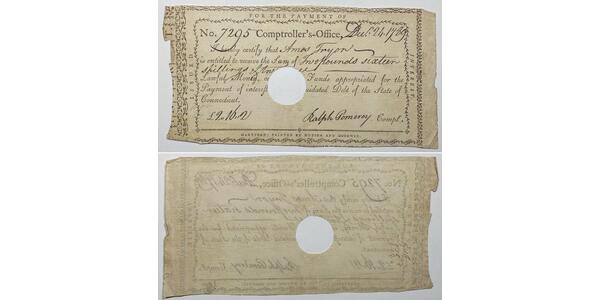 FOR THE PAYMENT OF
ISSUED
INTEREST
No. 7295 Comptroller's-Office, Dec. 24 1789
I hereby certify that Amos Tryon
is entitled to receive the Sum of Two pounds sixteen
shillings &
Lawful Money, Funds appropriated for the
Payment of interest Debt of the State of
Connecticut,
£2.16.2 Ralph Pomeroy Compt.
HARTFORD: PRINTED BY HUDSON AND GOODWIN.